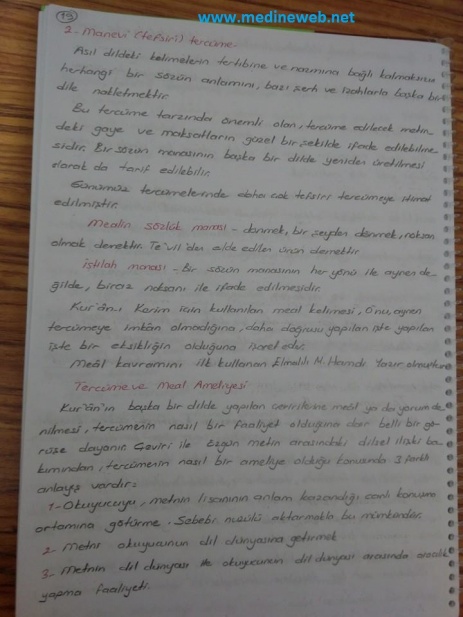 www.medineweb.net
19
2- Manevi (tefsiri) tercüme-
Asıl dildeki kelimelerin tertibine ve nazmına bağlı kalmaksızın
herhangi bir sözün anlamını, bazı şerh ve izahlarla başka bir
dile nakletmektir.
Bu tercüme tarzında önemli olan, tercüme edilecek metin-
deki gaye ve maksatların güzel bir şekilde ifade edilebilme-
sidir. Bir sözün manasının başka bir dilde yeniden üretilmesi
olarak da tarif edilebilir.
Günümüz tercümelerinde daha çok tefsiri tercümeye itimat
edilmiştir.
Mealin sözlük manası - dönmek, bir şeyden dönmek, noksan
olmak demektir. Te'vil'den elde edilen ürün demektir
Istılah manası - Bir sözün manasının her yönü ile aynen de-
ğilde, biraz noksanı ile ifade edilmesidir.
Kur'ân-ı Kerim için kullanılan meal kelimesi, O'nu, aynen
tercümeye imkân olmadığına, daha doğrusu yapılan işte yapılan
işte bir eksikliğin olduğuna işaret eder.
Meâl kavramını ilk kullanan Elmalılı M. Hamdi Yazır olmuştur
Tercüme ve Meal Ameliyesi
Kur'ân'ın başka bir dilde yapılan çevirisine meâl ya da yorum de-
nilmesi, tercümenin nasıl bir faaliyet olduğuna dair belli bir gö-
rüşe dayanır. Çeviri ile özgün metin arasındaki dilsel ilişki ba-
kımından, tercümenin nasıl bir ameliye olduğu konusunda 3 farklı
anlayış vardır:
1- Okuyucuyu, metnin lisanının anlam kazandığı canlı konuşma
ortamına götürme. Sebebi nüzûlü aktarmakla bu mümkündür.
2- Metni okuyucunun dil dünyasına getirmek
3- Metnin dil dünyası ile okuyucunun dil dünyası arasında aracılık
yapma faaliyeti.